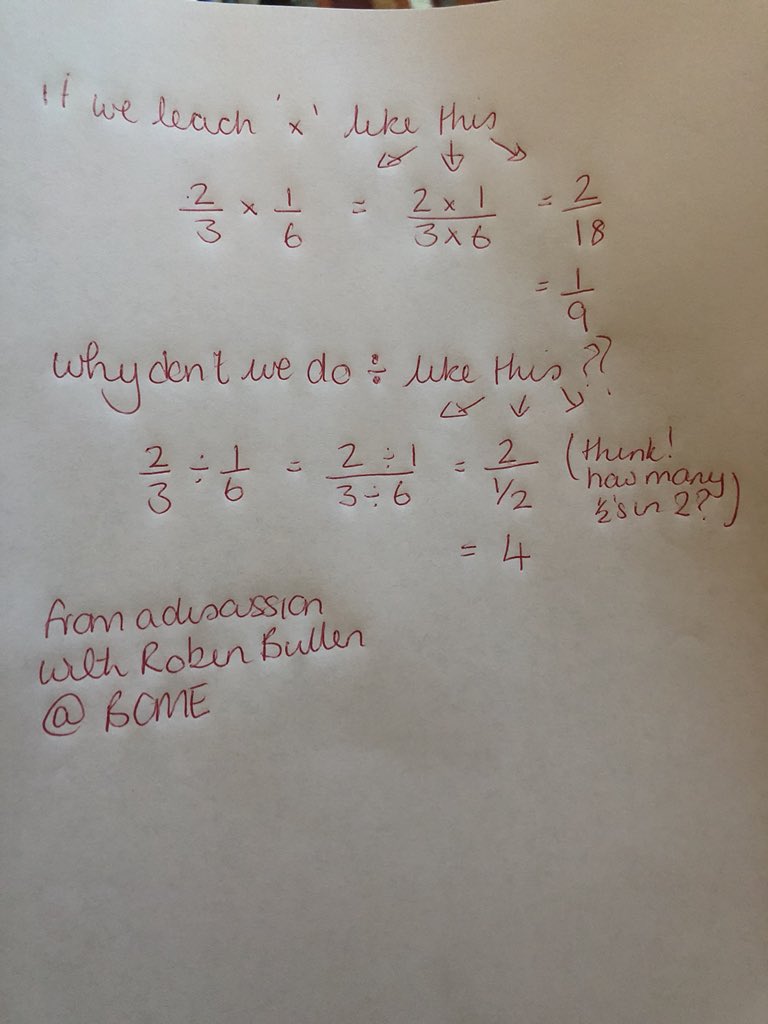 If we teach 'x' like this
↙ ↓ ↘
2/3 × 1/6 = 2 × 1/3 × 6 = 2/18
= 1/9
Why don't we do ÷ like this??
↙ ↓ ↘
2/3 ÷ 1/6 = 2 ÷ 1/3 ÷ 6 = 2/1/2 (think! how many ½'s in 2?)
= 4
from a discussion
with Robin Bullen
@ BCME